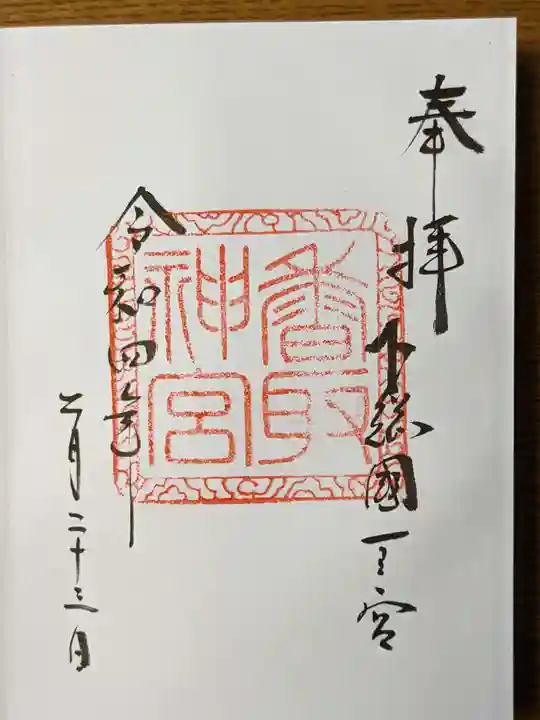 奉拝
下總國一之宮
香取
神宮
令和四年
二月二十三日